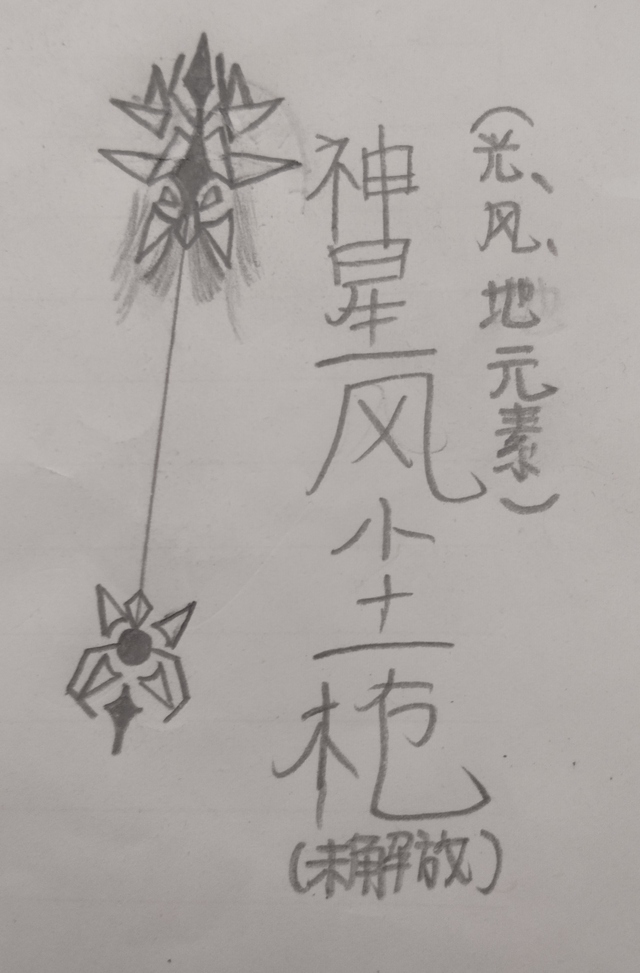 (光、风、地元素)
神星风尘枪
(未解放)